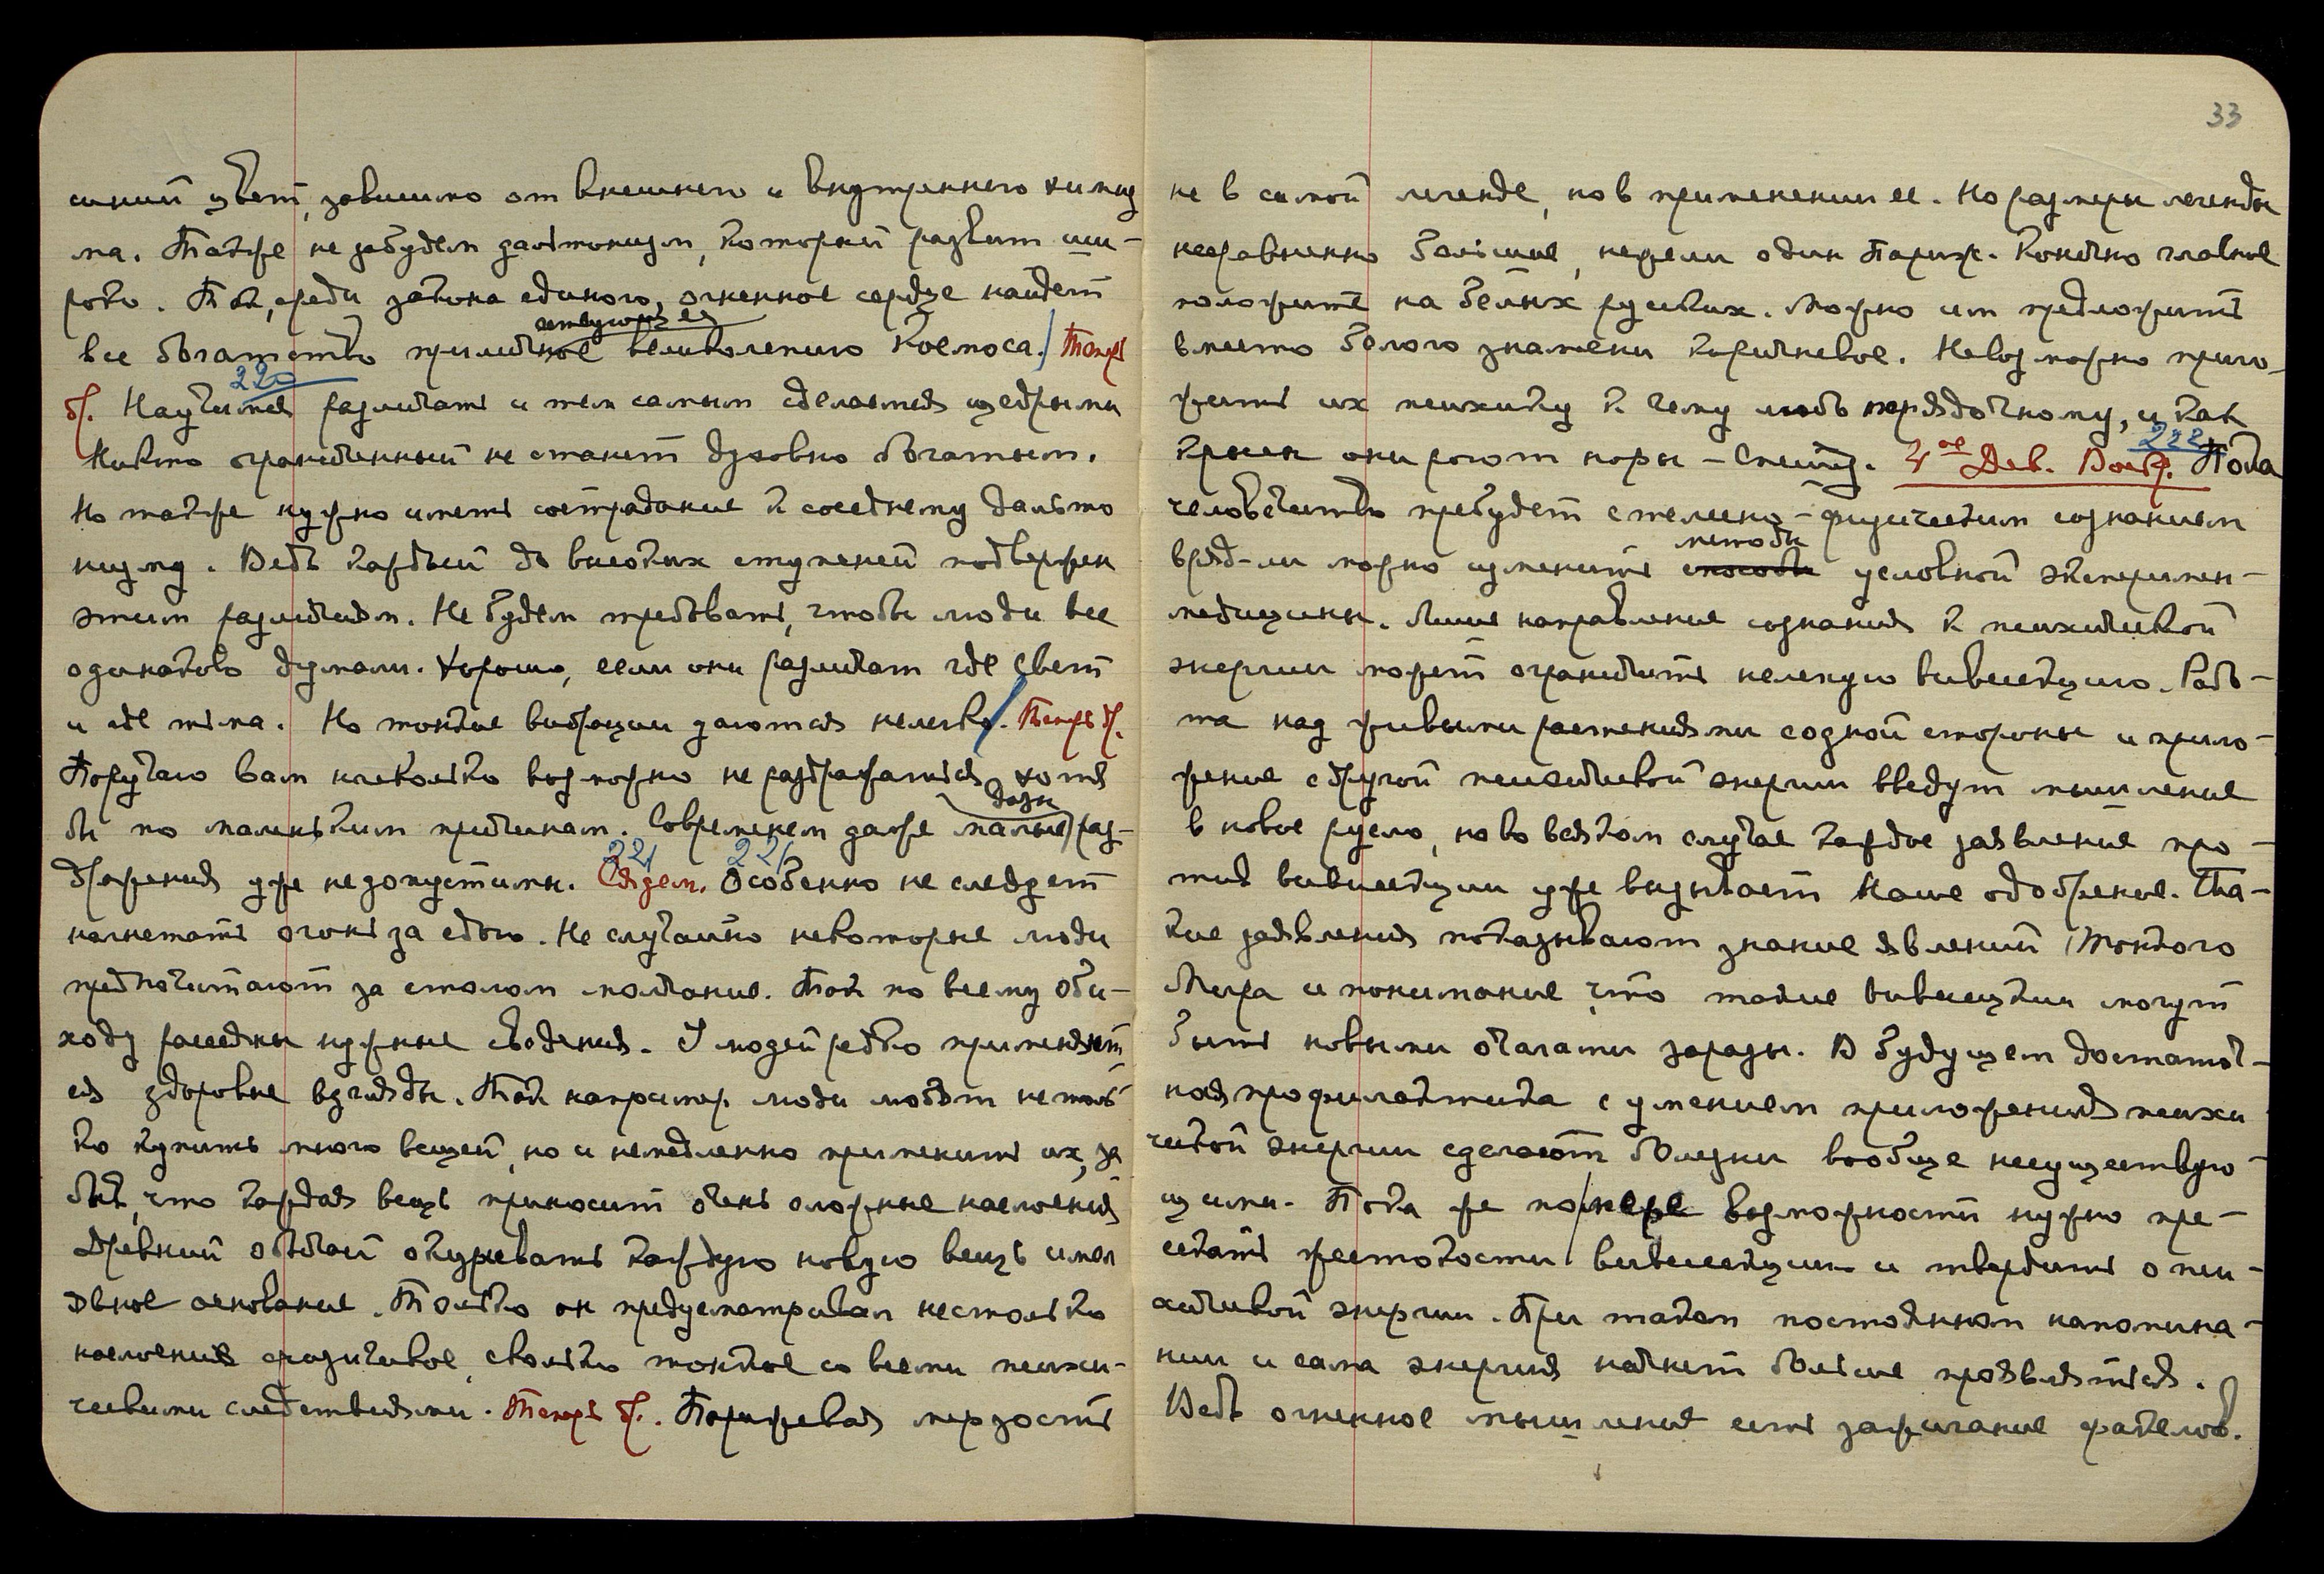 синий цвет, зависимо от внешнего и внутреннего химиз
ма. Также не забудем дальтонизм, который развит ши-
роко. Так, среди закона единого, огненное сердце найдет
ствующее
все богатство приличное великолепию Космоса. Теперь
220
др. Научимся различать и тем самым сделаемся щедрыми
Никто ограниченный не станет духовно богатым.
Но также нужно иметь сострадание к соседнему дальто
низму. Ведь каждый до высоких ступеней подвержен
этим различиям. Не будем требовать, чтобы люди все
одинаково думали. Хорошо, если они различат где свет
и где тьма. Но тонкие вибрации даются нелегко. Теперь др.
Поручаю вам насколько возможно не раздражаться хотя
дозы
бы по маленьким причинам. Современем даже малые раз-
221 221
дражения уже недопустимы. Сядем. Особенно не следует
нагнетать огонь за едою. Не случайно некоторые люди
предпочитают за столом молчание. Так по всему оби-
ходу рассеяны нужные сведения. У людей редко применяют
ся здоровые взгляды. Так например люди любят не толь
ко купить много вещей, но и немедленно применить их, за
быв, что каждая вещь приносит очень сложные наслоения
Древний обычай окуривать каждую новую вещь имел
явное основание. Только он предусматривал не столько
наслоение физическое, сколько тонкое со всеми психи-
ческими следствиями. Теперь др. Парижевая мерзость
33
не в самой легенде, но в применении ее. Но размеры легенды
несравненно большие, нежели один Париж. Конечно главное
положите на белых русских. Можно им предложить
вместо белого знамени коричневое. Невозможно прило-
жить их психику к чему либо порядочному, и как
222
крысы они роют норы – Спешу. 4ое Дев. Воскр. Пока
человечество пребудет с телесно-физическим сознанием
методы
вряд-ли можно изменить способы условной эксперимен-
медицины. Лишь направление сознания к психической
энергии может ограничить нелепую вивисекцию. Рабо-
та над живыми растениями с одной стороны и прило-
жение с другой психической энергии введут мышление
в новое русло, но во всяком случае каждое заявление про-
тив вивисекции уже вызывает Наше одобрение. Та-
кие заявления показывают знание явлений Тонкого
Мира и понимание, что такие вивисекции могут
быть новыми очагами заразы. В будущем достаточ-
ная профилактика с умением приложения психи
ческой энергии сделают болезни вообще несуществую-
щими. Пока же по мере возможности нужно пре-
секать жестокости вивисекции и твердить о пси-
хической энергии. При таком постоянном напомина-
нии и сама энергия начнет больше проявляться.
Ведь огненное мышление есть зажигание факелов.